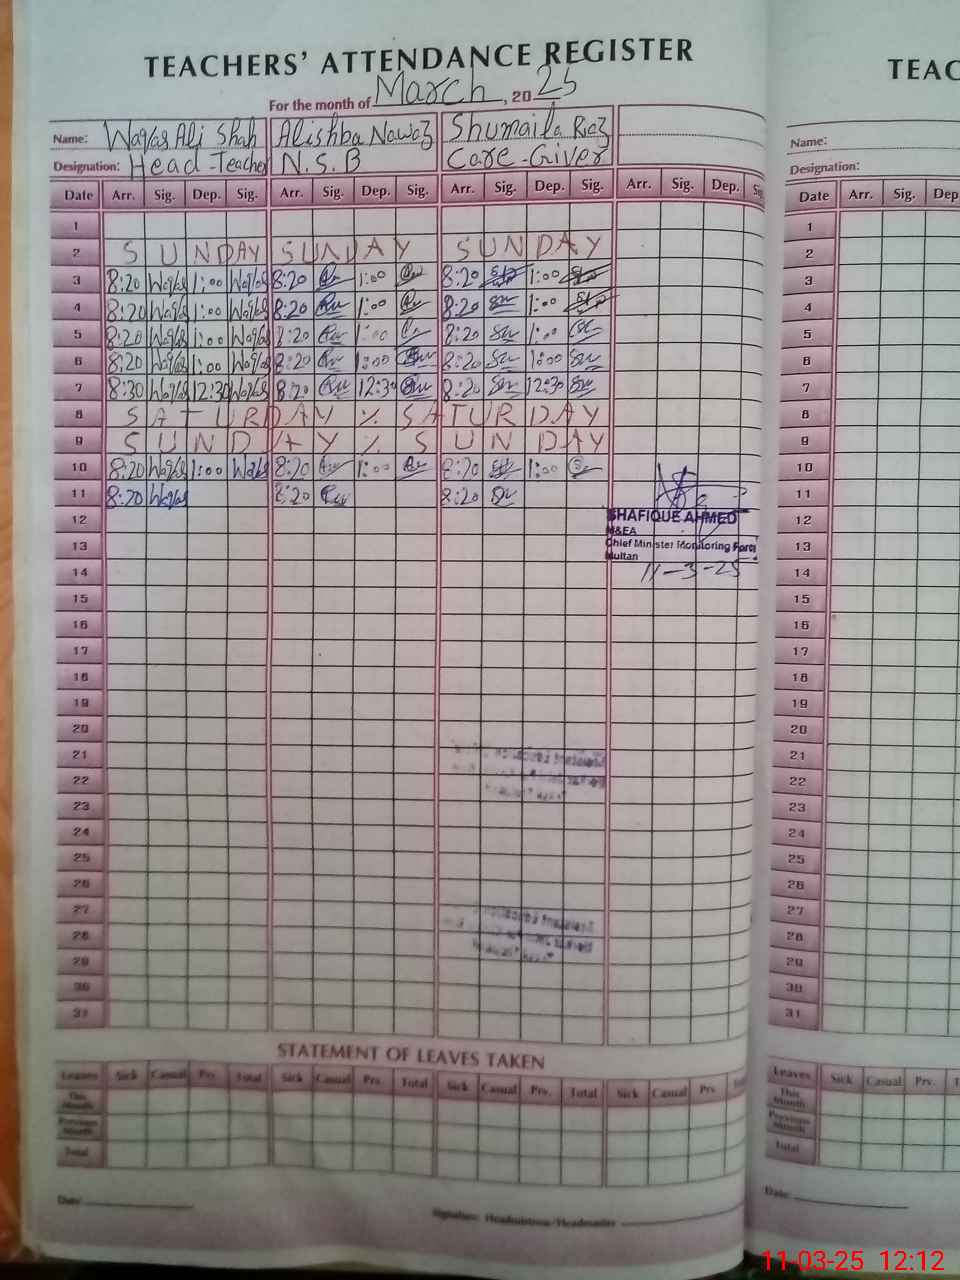 TEACHERS' ATTENDANCE REGISTER
For the month of March, 2025
Name: Waqas Ali Shah Alishba Nawaz Shumaila Riaz
Designation: Head-Teacher N.S.B Care-Giver
Date Arr. Sig. Dep. Sig. Arr. Sig. Dep. Sig. Arr. Sig. Dep. Sig. Arr. Sig. Dep. Sig.
1
2 SUNDAY SUNDAY SUNDAY
3 8:20 Waqas 1:00 Waqas 8:20 1:00 8:20 1:00
4 8:20 Waqas 1:00 Waqas 8:20 1:00 8:20 1:00
5 8:20 Waqas 1:00 Waqas 8:20 1:00 8:20 1:00
6 8:20 Waqas 1:00 Waqas 8:20 1:00 8:20 1:00
7 8:30 Waqas 12:30 Waqas 8:20 12:30 8:20 12:30
8 SATURDAY % SATURDAY
9 SUNDAY % SUNDAY
10 8:20 Waqas 1:00 Waqas 8:20 1:00 8:20 1:00
11 8:20 Waqas 8:20 8:20
12
13
14
15
16
17
18
19
20
21
22
23
24
25
26
27
28
29
30
31
SHAFIQUE AHMED
M&EA
Chief Minister Monitoring Force
Multan
11-3-25
STATEMENT OF LEAVES TAKEN
Leaves Sick Casual Prv. Total Sick Casual Prv. Total Sick Casual Prv. Total Sick Casual Prv.
This Month
Previous Month
Total
Date:
Signature Headmistress/Headmaster
TEAC
Name:
Designation:
Date Arr. Sig. Dep
1
2
3
4
5
6
7
8
9
10
11
12
13
14
15
16
17
18
19
20
21
22
23
24
25
26
27
28
29
30
31
Leaves Sick Casual Prv. T
This Month
Previous Month
Total
Date:
11-03-25 12:12